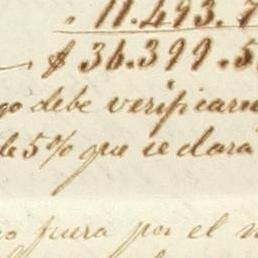 11.493.7
$ 36.399.5
go debe verificar
de 5% que se dará
fuera por el